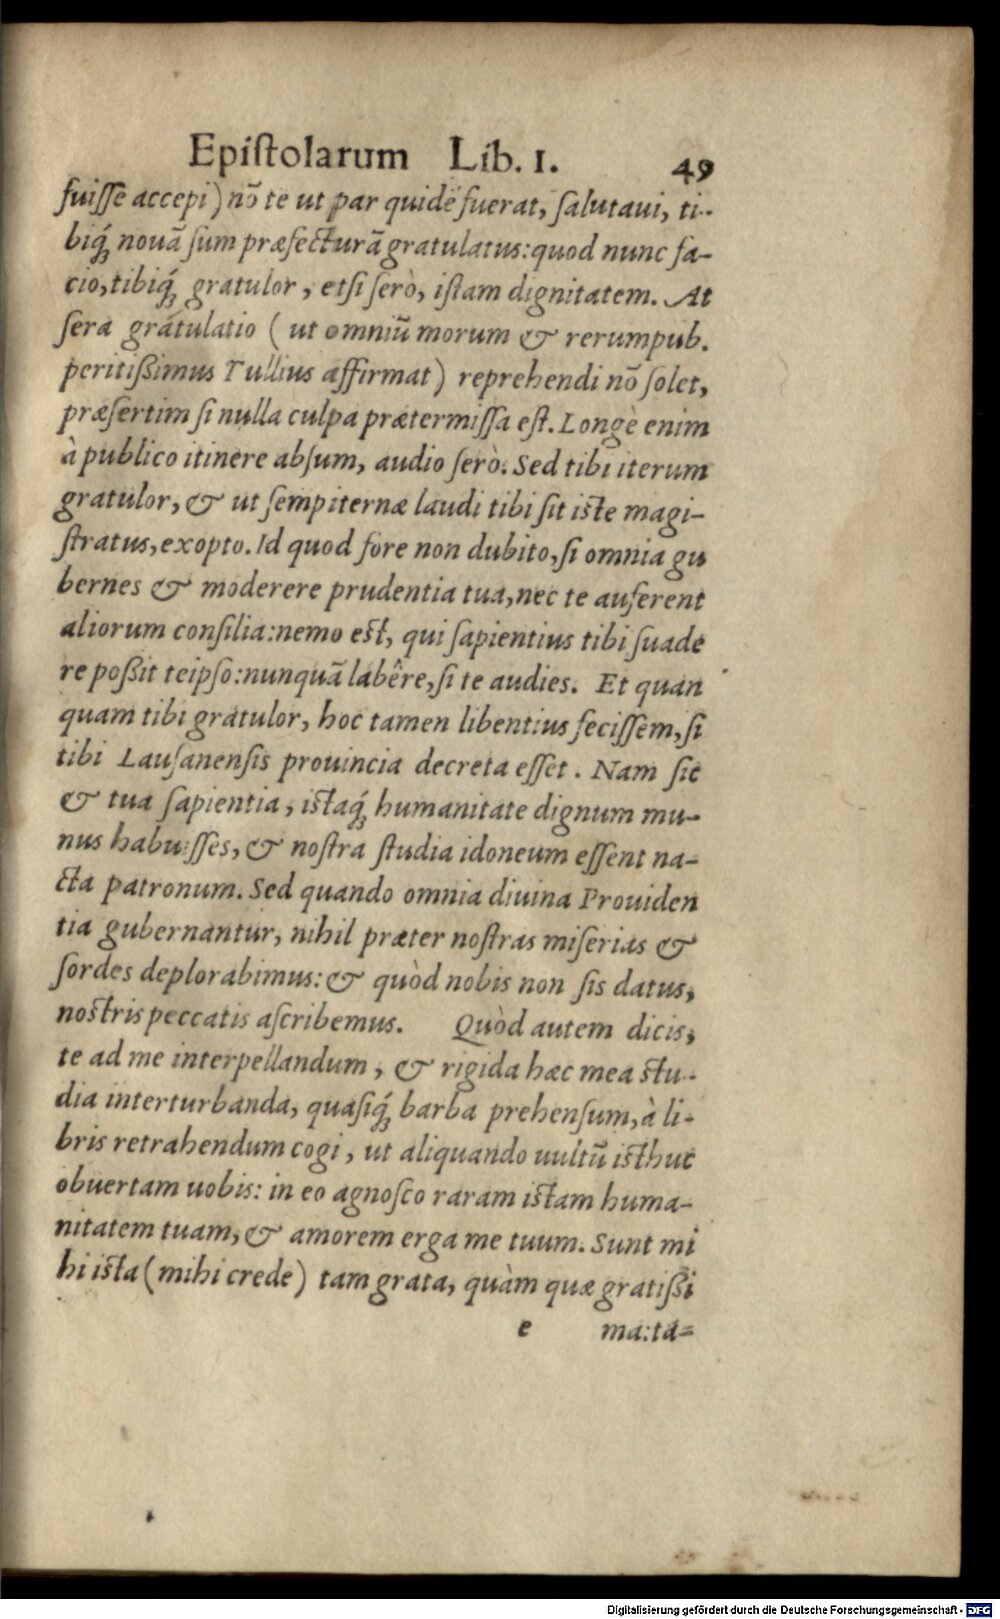 Epiſtolarum Lib. I. 49
fuiſſe accepi) nō te ut par quidē fuerat, ſalutaui, ti-
biq́ꝫ nouā ſum præfecturā gratulatus: quod nunc fa-
cio, tibiq́ꝫ gratulor, etſi ſerò, iſtam dignitatem. At
ſera gratulatio ( ut omniū morum & rerumpub.
peritißimus Tullius affirmat) reprehendi nō ſolet,
præſertim ſi nulla culpa prætermiſſa eſt. Longè enim
à publico itinere abſum, audio ſerò. Sed tibi iterum
gratulor, & ut ſempiternæ laudi tibi ſit iſte magi-
ſtratus, exopto. Id quod fore non dubito, ſi omnia gu
bernes & moderere prudentia tua, nec te auferent
aliorum conſilia: nemo eſt, qui ſapientius tibi ſuade
re poßit teipſo: nunquā labêre, ſi te audies. Et quan
quam tibi gratulor, hoc tamen libentius feciſſem, ſi
tibi Lauſanenſis prouincia decreta eſſet. Nam ſic
& tua ſapientia, iſtaq́ꝫ humanitate dignum mu-
nus habuiſſes, & noſtra ſtudia idoneum eſſent na-
cta patronum. Sed quando omnia diuina Prouiden
tia gubernantur, nihil præter noſtras miſerias &
ſordes deplorabimus: & quòd nobis non ſis datus,
noſtris peccatis aſcribemus. Quòd autem dicis,
te ad me interpellandum, & rigida hæc mea ſtu-
dia interturbanda, quaſiq́ꝫ barba prehenſum, à li-
bris retrahendum cogi, ut aliquando uultū iſthuc
obuertam uobis: in eo agnoſco raram iſtam huma-
nitatem tuam, & amorem erga me tuum. Sunt mi
hi iſta (mihi crede) tam grata, quàm quæ gratißi
e ma: ta-
Digitalisierung gefördert durch die Deutsche Forschungsgemeinschaft - DFG